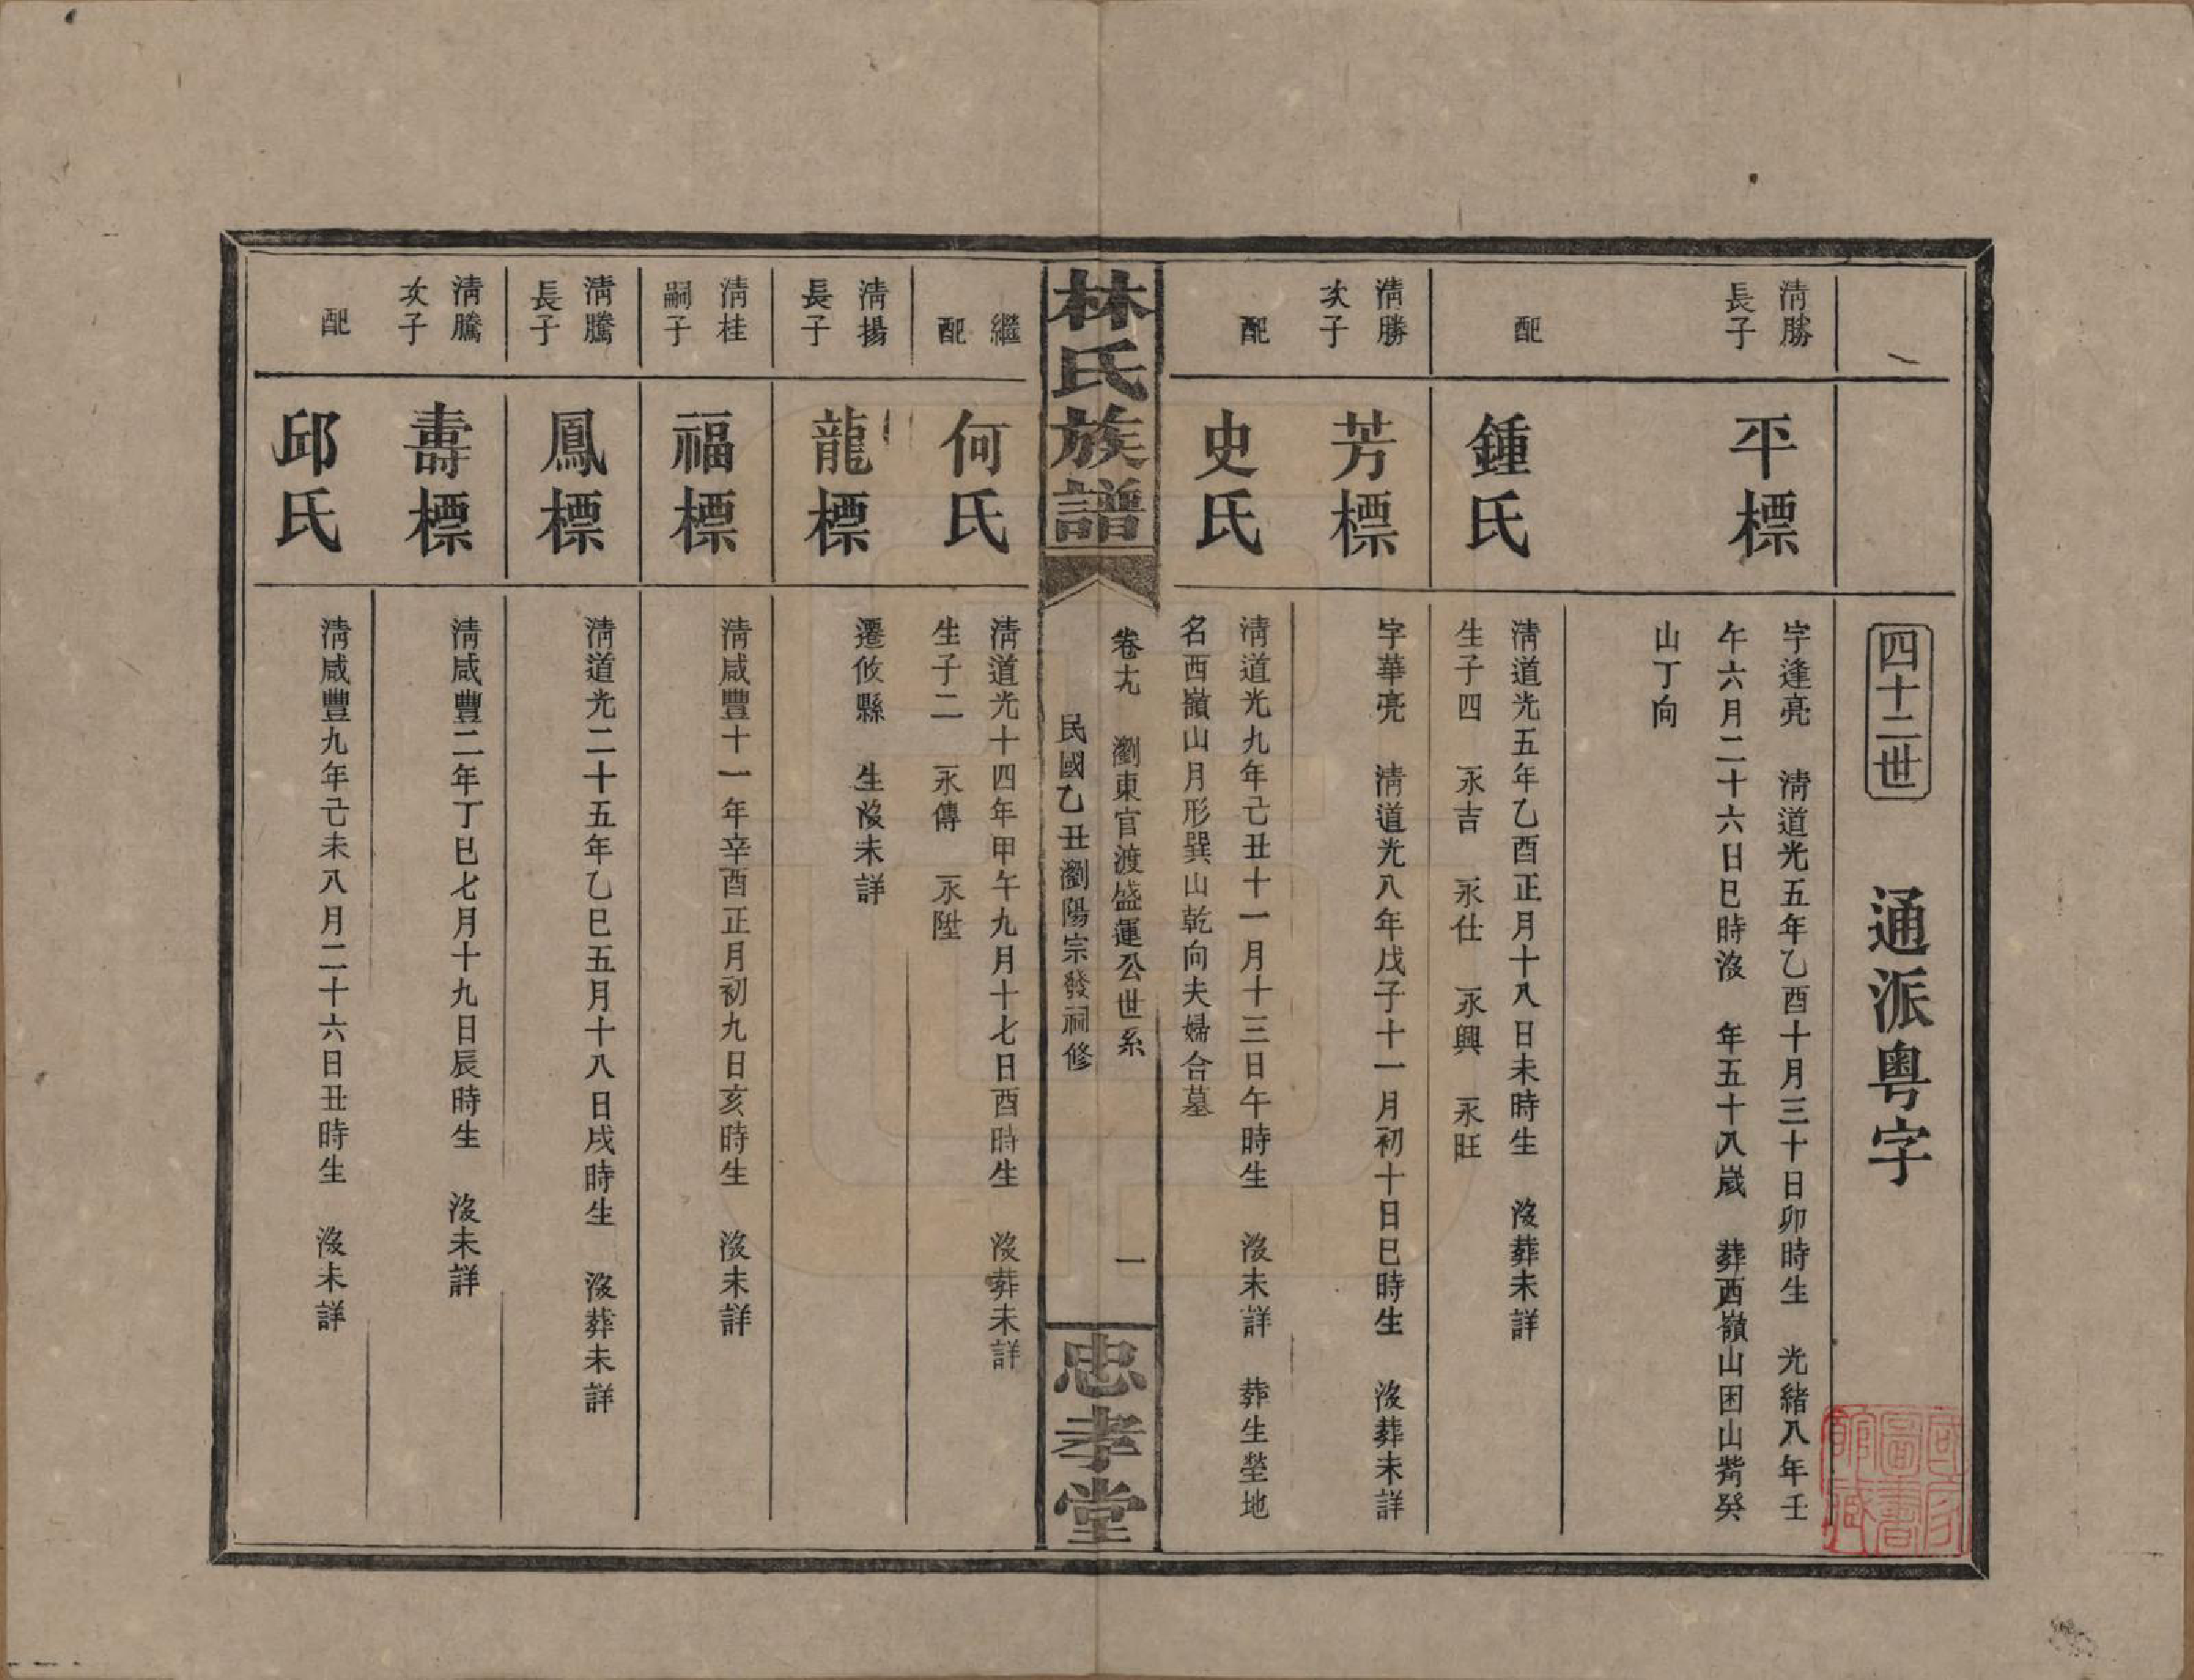 四十二世
通派粤字
清勝
長子
平標
字逢亮　清道光五年乙酉十月三十日卯時生　光緒八年壬
午六月二十六日巳時沒　年五十八歲　葬西嶺山困山觜癸
山丁向
配
鍾氏
清道光五年乙酉正月十八日未時生　沒葬未詳
生子四　永吉　永仕　永興　永旺
清勝
次子
芳標
字華亮　清道光八年戊子十一月初十日巳時生　沒葬未詳
配
史氏
清道光九年己丑十一月十三日午時生　沒未詳　葬生塋地
名西嶺山月形巽山乾向夫婦合墓
林氏族譜
卷十九　瀏東官渡盛運公世系
民國乙丑瀏陽宗發祠修
一
忠孝堂
繼
配
何氏
清道光十四年甲午九月十七日酉時生　沒葬未詳
生子二　永傳　永陞
清揚
長子
龍標
遷攸縣　生沒未詳
清桂
嗣子
福標
清咸豐十一年辛酉正月初九日亥時生　沒未詳
清騰
長子
鳳標
清道光二十五年乙巳五月十八日戌時生　沒葬未詳
清騰
次子
壽標
清咸豐二年丁巳七月十九日辰時生　沒未詳
配
邱氏
清咸豐九年己未八月二十六日丑時生　沒未詳
國家圖書館藏